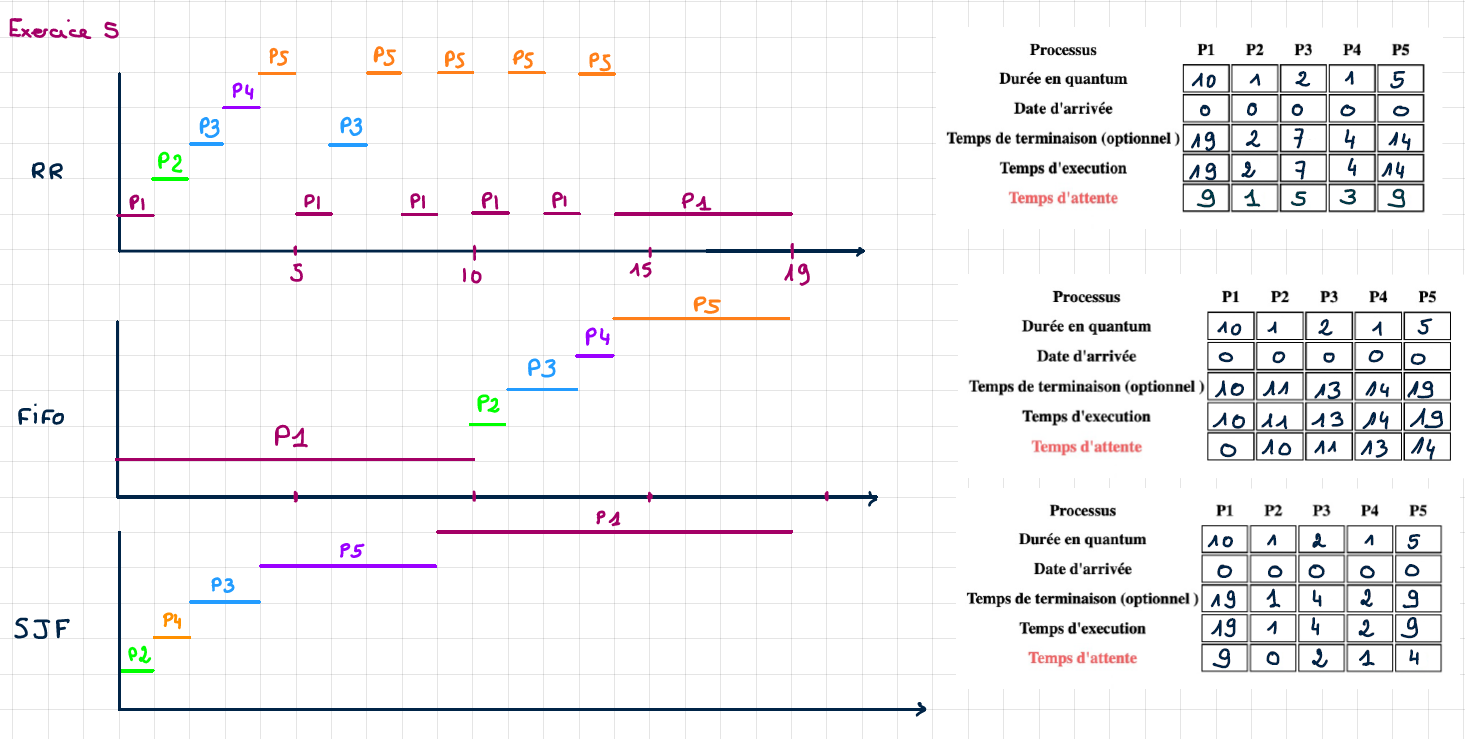 Exercice 5
RR
P5 P5 P5 P5 P5
P4
P3 P3
P2
P1 P1 P1 P1 P1 P1
5 10 15 19
Processus P1 P2 P3 P4 P5
Durée en quantum 10 1 2 1 5
Date d'arrivée 0 0 0 0 0
Temps de terminaison (optionnel ) 19 2 7 4 14
Temps d'execution 19 2 7 4 14
Temps d'attente 9 1 5 3 9
FiFo
P5
P4
P3
P2
P1
Processus P1 P2 P3 P4 P5
Durée en quantum 10 1 2 1 5
Date d'arrivée 0 0 0 0 0
Temps de terminaison (optionnel ) 10 11 13 14 19
Temps d'execution 10 11 13 14 19
Temps d'attente 0 10 11 13 14
SJF
P1
P5
P3
P4
P2
Processus P1 P2 P3 P4 P5
Durée en quantum 10 1 2 1 5
Date d'arrivée 0 0 0 0 0
Temps de terminaison (optionnel ) 19 1 4 2 9
Temps d'execution 19 1 4 2 9
Temps d'attente 9 0 2 1 4